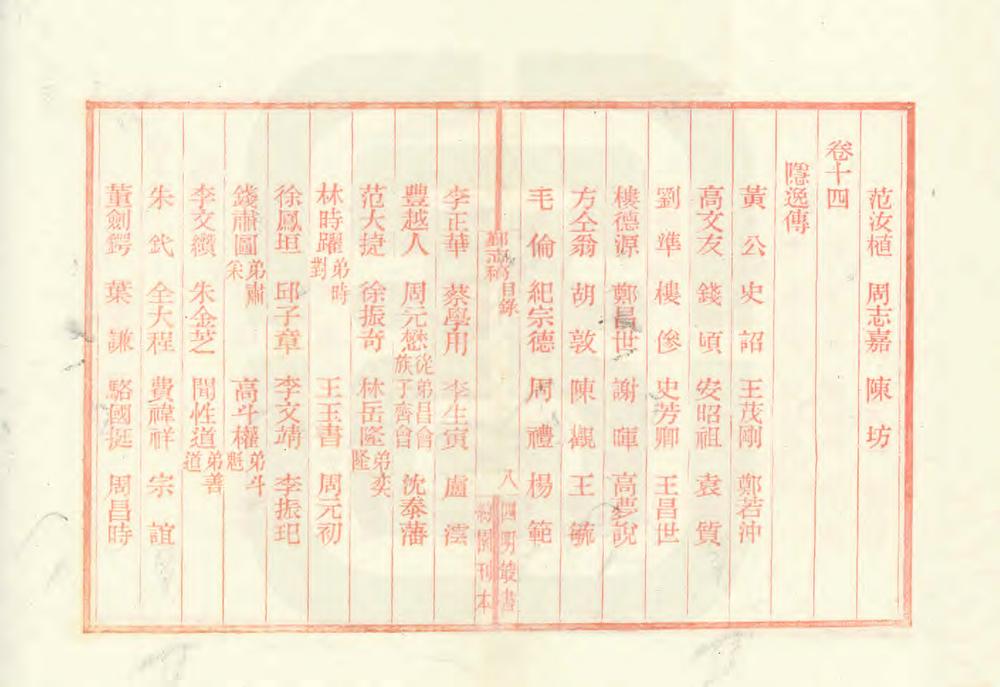 范汝植 周志嘉 陳坊
卷十四
隱逸傳
黃公 史詔 王茂剛 鄭若沖
高文友 錢頃 安昭祖 袁質
劉準 樓偐 史芳卿 王昌世
樓德源 鄭昌世 謝暉 高夢說
方仝翁 胡敦 陳觀 王毓
毛倫 紀宗德 周禮 楊範
鄞志稿 目錄 八 四明叢書
約園刊本
李正華 蔡學用 李生寅 盧澐
豐越人 周元懋從弟昌會族子齊曾 沈泰藩
范大捷 徐振奇 林岳隆弟奕隆
林時躍弟時對 王玉書 周元初
徐鳳垣 邱子章 李文靖 李振玘
錢肅圖弟肅 高斗權弟斗魁
李文纘 朱金芝 聞性道弟善道
朱釴 全大程 費禕祥 宗誼
董劍鍔 葉謙 駱國挺 周昌時